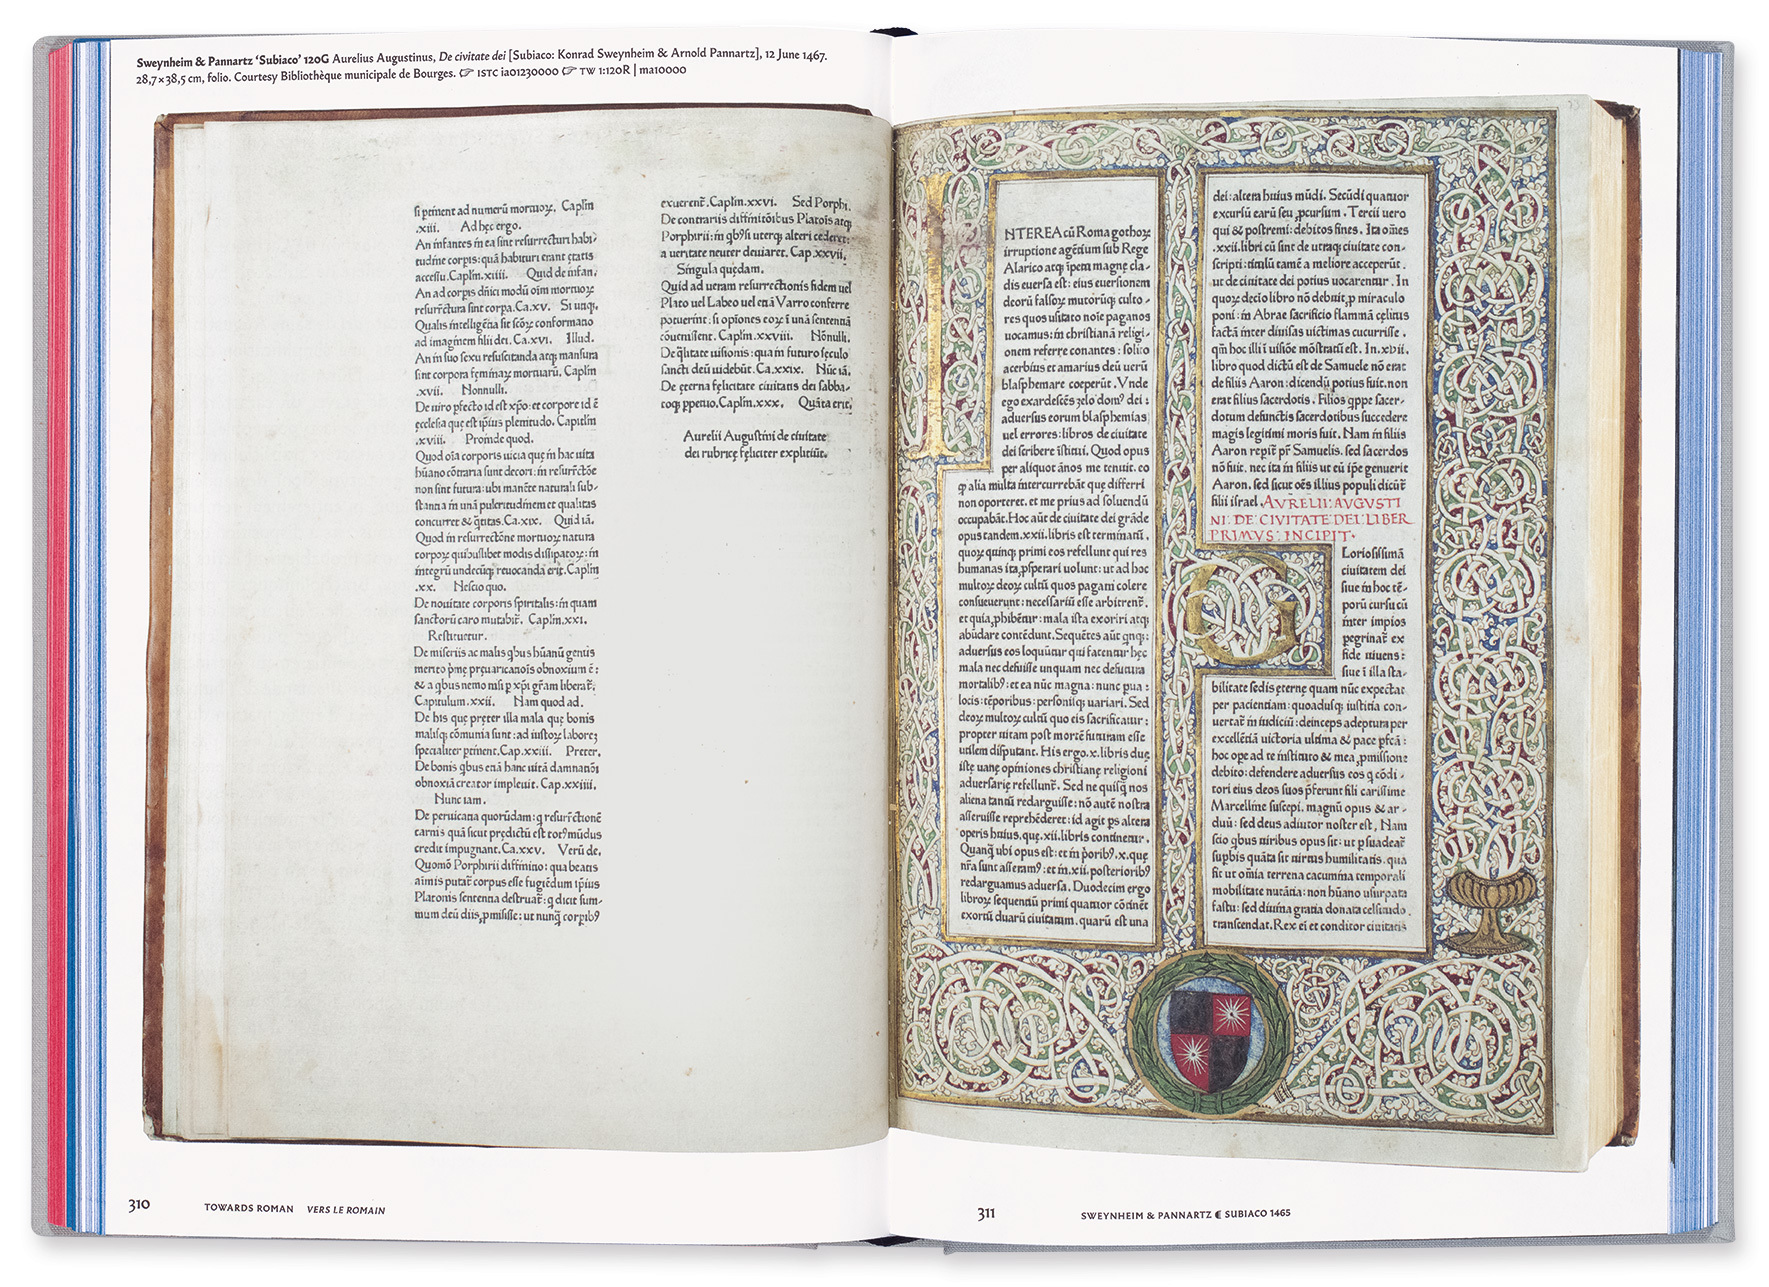 Sweynheim & Pannartz ‘Subiaco’ 120G Aurelius Augustinus, De civitate dei [Subiaco: Konrad Sweynheim & Arnold Pannartz], 12 June 1467.
28,7 × 38,5 cm, folio. Courtesy Bibliothèque municipale de Bourges. ☞ ISTC ia01230000 ☞ TW 1:120R | ma10000
si ptinent ad numerū mortuoꝝ. Caplm
.xiii. Ad hęc ergo.
An infantes in ea sint resurrecturi habi-
tudine corpis: quā habituri erant ętatis
accessu. Caplm.xiiii. Quid de infan.
An ad corpis dñici modū oim mortuoꝝ
resurr̄ctura sint corpa. Ca.xv. Si utiqꝫ.
Qualis intelligēda sit scōꝝ conformatio
ad imaginem filii dei. Ca.xvi. Illud.
An in suo sexu resuscitanda atqꝫ mansura
sint corpora feminaꝝ mortuarū. Caplm
.xvii. Nonnulli.
De uiro pfecto id est xp̄o: et corpore id ē
ęcclesia quę est ip̄ius plenitudo. Capitulm
.xviii. Proinde quod.
Quod oīa corporis uicia quę in hac uita
hūano cōtraria sunt decori: in resurr̄ctōe
non sint futura: ubi manēte naturali sub-
stantia in unā pulcritudinem et qualitas
concurret & q̄titas. Ca.xix. Quid iā.
Quod in resurrectōne mortuoꝝ natura
corpoꝝ quibuslibet modis dissipatoꝝ: in
integrū undecūqꝫ reuocanda erit. Caplm
.xx. Nescio quo.
De nouitate corporis spiritalis: in quam
sanctorū caro mutabit̄. Caplm.xxi.
Restituetur.
De miseriis ac malis q̄bus hūanū gentis
merito p̄mę pręuaricatiōis obnoxium ē:
& a q̄bus nemo nisi p xp̄i grām liberat̄.
Capitulum.xxii. Nam quod ad.
De his quę pręter illa mala quę bonis
malisqꝫ cōmunia sunt: ad iustoꝝ laborez
specialiter ptinent. Cap.xxiii. Preter.
De bonis q̄bus etiā hanc uitā damnatiōi
obnoxiā creator impleuit. Cap.xxiiii.
Nunc iam.
De peruicatia quorūdam: q resurr̄ctionē
carnis quā sicut prędictū est tot9 mūdus
credit impugnant. Ca.xxv. Verū de.
Quomō Porphirii diffinitio: qua beatis
aīmis putat̄ corpus esse fugiēdum ip̄ius
Platonis sententia destruat̄: q dicit sum-
mum deū diis ꝓmisisse: ut nunq̄ corpib9
exuerent̄. Caplm.xxvi. Sed Porphi.
De contrariis diffinitōibus Platōis atqꝫ
Porphirii: in qb9 si uterqꝫ alteri cederet:
a ueritate neuter deuiaret. Cap.xxvii.
Singula quędam.
Quid ad ueram resurrectionis fidem uel
Plato uel Labeo uel etiā Varro conferre
potuerint: si opiōnes eoꝝ ī unā sententiā
cōuenissent. Caplm.xxviii. Nōnulli.
De q̄litate uisionis: qua in futuro sęculo
sancti deū uidebūt. Ca.xxix. Nūc iā.
De ęterna fęlicitate ciuitatis dei sabba-
toqꝫ ppetuo. Caplm.xxx. Quāta erit.
Aurelii Augustini de ciuitate
dei rubricę fęliciter expliciūt.
NTEREA cū Roma gothoꝝ
irruptione agētium sub Rege
Alarico atqꝫ īpetu magnę cla-
dis euersa est: eius euersionem
deorū falsoꝝ multorūqꝫ culto-
res quos usitato noīe paganos
uocamus: in christianā religi-
onem referre conantes: solito
acerbius et amarius deū uerū
blasphemare coeperūt. Vnde
ego exardescēs zelo dom9 dei:
aduersus eorum blasphemias
uel errores: libros de ciuitate
dei scribere īstitui. Quod opus
per aliquot ānos me tenuit. eo
ꝙ alia multa intercurrebāt quę differri
non oporteret. et me prius ad soluendū
occupabāt. Hoc aūt de ciuitate dei grāde
opus tandem.xxii. libris est terminatū.
quoꝝ quinqꝫ primi eos refellunt qui res
humanas ita ꝓsperari uolunt: ut ad hoc
multoꝝ deoꝝ cultū quos pagani colere
consueuerunt: necessariū esse arbitrent̄.
et quia ꝓhibētur: mala ista exoriri atqꝫ
abūdare contēdunt. Sequētes aūt qnqꝫ:
aduersus eos loquūtur qui fatentur hęc
mala nec defuisse unquam nec defutura
mortalib9: et ea nūc magna: nunc pua:
locis: tēporibus: personisqꝫ uariari. Sed
deoꝝ multoꝝ cultū quo eis sacrificatur:
propter uitam post mortē futuram esse
utilem disputant. His ergo.x. libris duę
istę uanę opiniones christianę religioni
aduersarię refellunt̄. Sed ne quisq̄ nos
aliena tantū redarguisse: nō autē nostra
asseruisse reprehēderet: id agit ps altera
operis huius. quę.xii. libris continetur.
Quanq̄ ubi opus est: et in p̄orib9.x. quę
nr̄a sunt asseram9: et in.xii. posteriorib9
redarguamus aduersa. Duodecim ergo
libroꝝ sequentiū primi quatuor cōtinēt
exortū duarū ciuitatum. quarū est una
dei: altera huius mūdi. Secūdi quatuor
excursū earū seu ꝓcursum. Tercii uero
qui & postremi: debitos fines. Ita oīnes
.xxii. libri cū sint de utraqꝫ ciuitate con-
scripti: titulū tamē a meliore acceperūt.
ut de ciuitate dei potius uocarentur. In
quoꝝ decīo libro nō debuit ꝓ miraculo
poni: in Abrae sacrificio flammā cęlitus
factā inter diuisas uictimas cucurrisse.
qm̄ hoc illi ī uisiōe mōstratū est. In.xvii.
libro quod dictū est de Samuele nō erat
de filiis Aaron: dicendū potius fuit. non
erat filius sacerdotis. Filios qppe sacer-
dotum defunctis sacerdotibus succedere
magis legitimi moris fuit. Nam in filiis
Aaron repit̄ pr̄ Samuelis. sed sacerdos
nō fuit. nec ita in filiis ut eū ip̄e genuerit
Aaron. sed sicut oēs illius populi dicūt̄
filii israel. AVRELII: AVGVSTI
NI: DE: CIVITATE: DEI: LIBER
PRIMVS: INCIPIT.
G
Loriosissimā
ciuitatem dei
siue in hoc tē-
porū cursu cū
inter impios
pegrinat̄ ex
fide uiuens:
siue ī illa sta-
bilitate sedis ęternę quam nūc expectat
per pacientiam: quoadusqꝫ iustitia con-
uertat̄ in iudiciū: deinceps adeptura per
excellētiā uictoria ultima & pace pfcā:
hoc ope ad te īnstituto & mea ꝓmissione
debito: defendere aduersus eos q cōdi-
tori eius deos suos p̄ferunt fili carissime
Marcelline suscepi. magnū opus & ar-
duū: sed deus adiutor noster est. Nam
scio qbus uiribus opus sit: ut ꝑsuadeat̄
supbis quāta sit uirtus humilitatis. qua
fit ut om̄ia terrena cacumina temporali
mobilitate nutātia: non hūano usurpata
fastu: sed diuina gratia donata celsitudo
transcendat. Rex ei et conditor ciuitatis
310 TOWARDS ROMAN VERS LE ROMAIN
311 SWEYNHEIM & PANNARTZ ☾ SUBIACO 1465